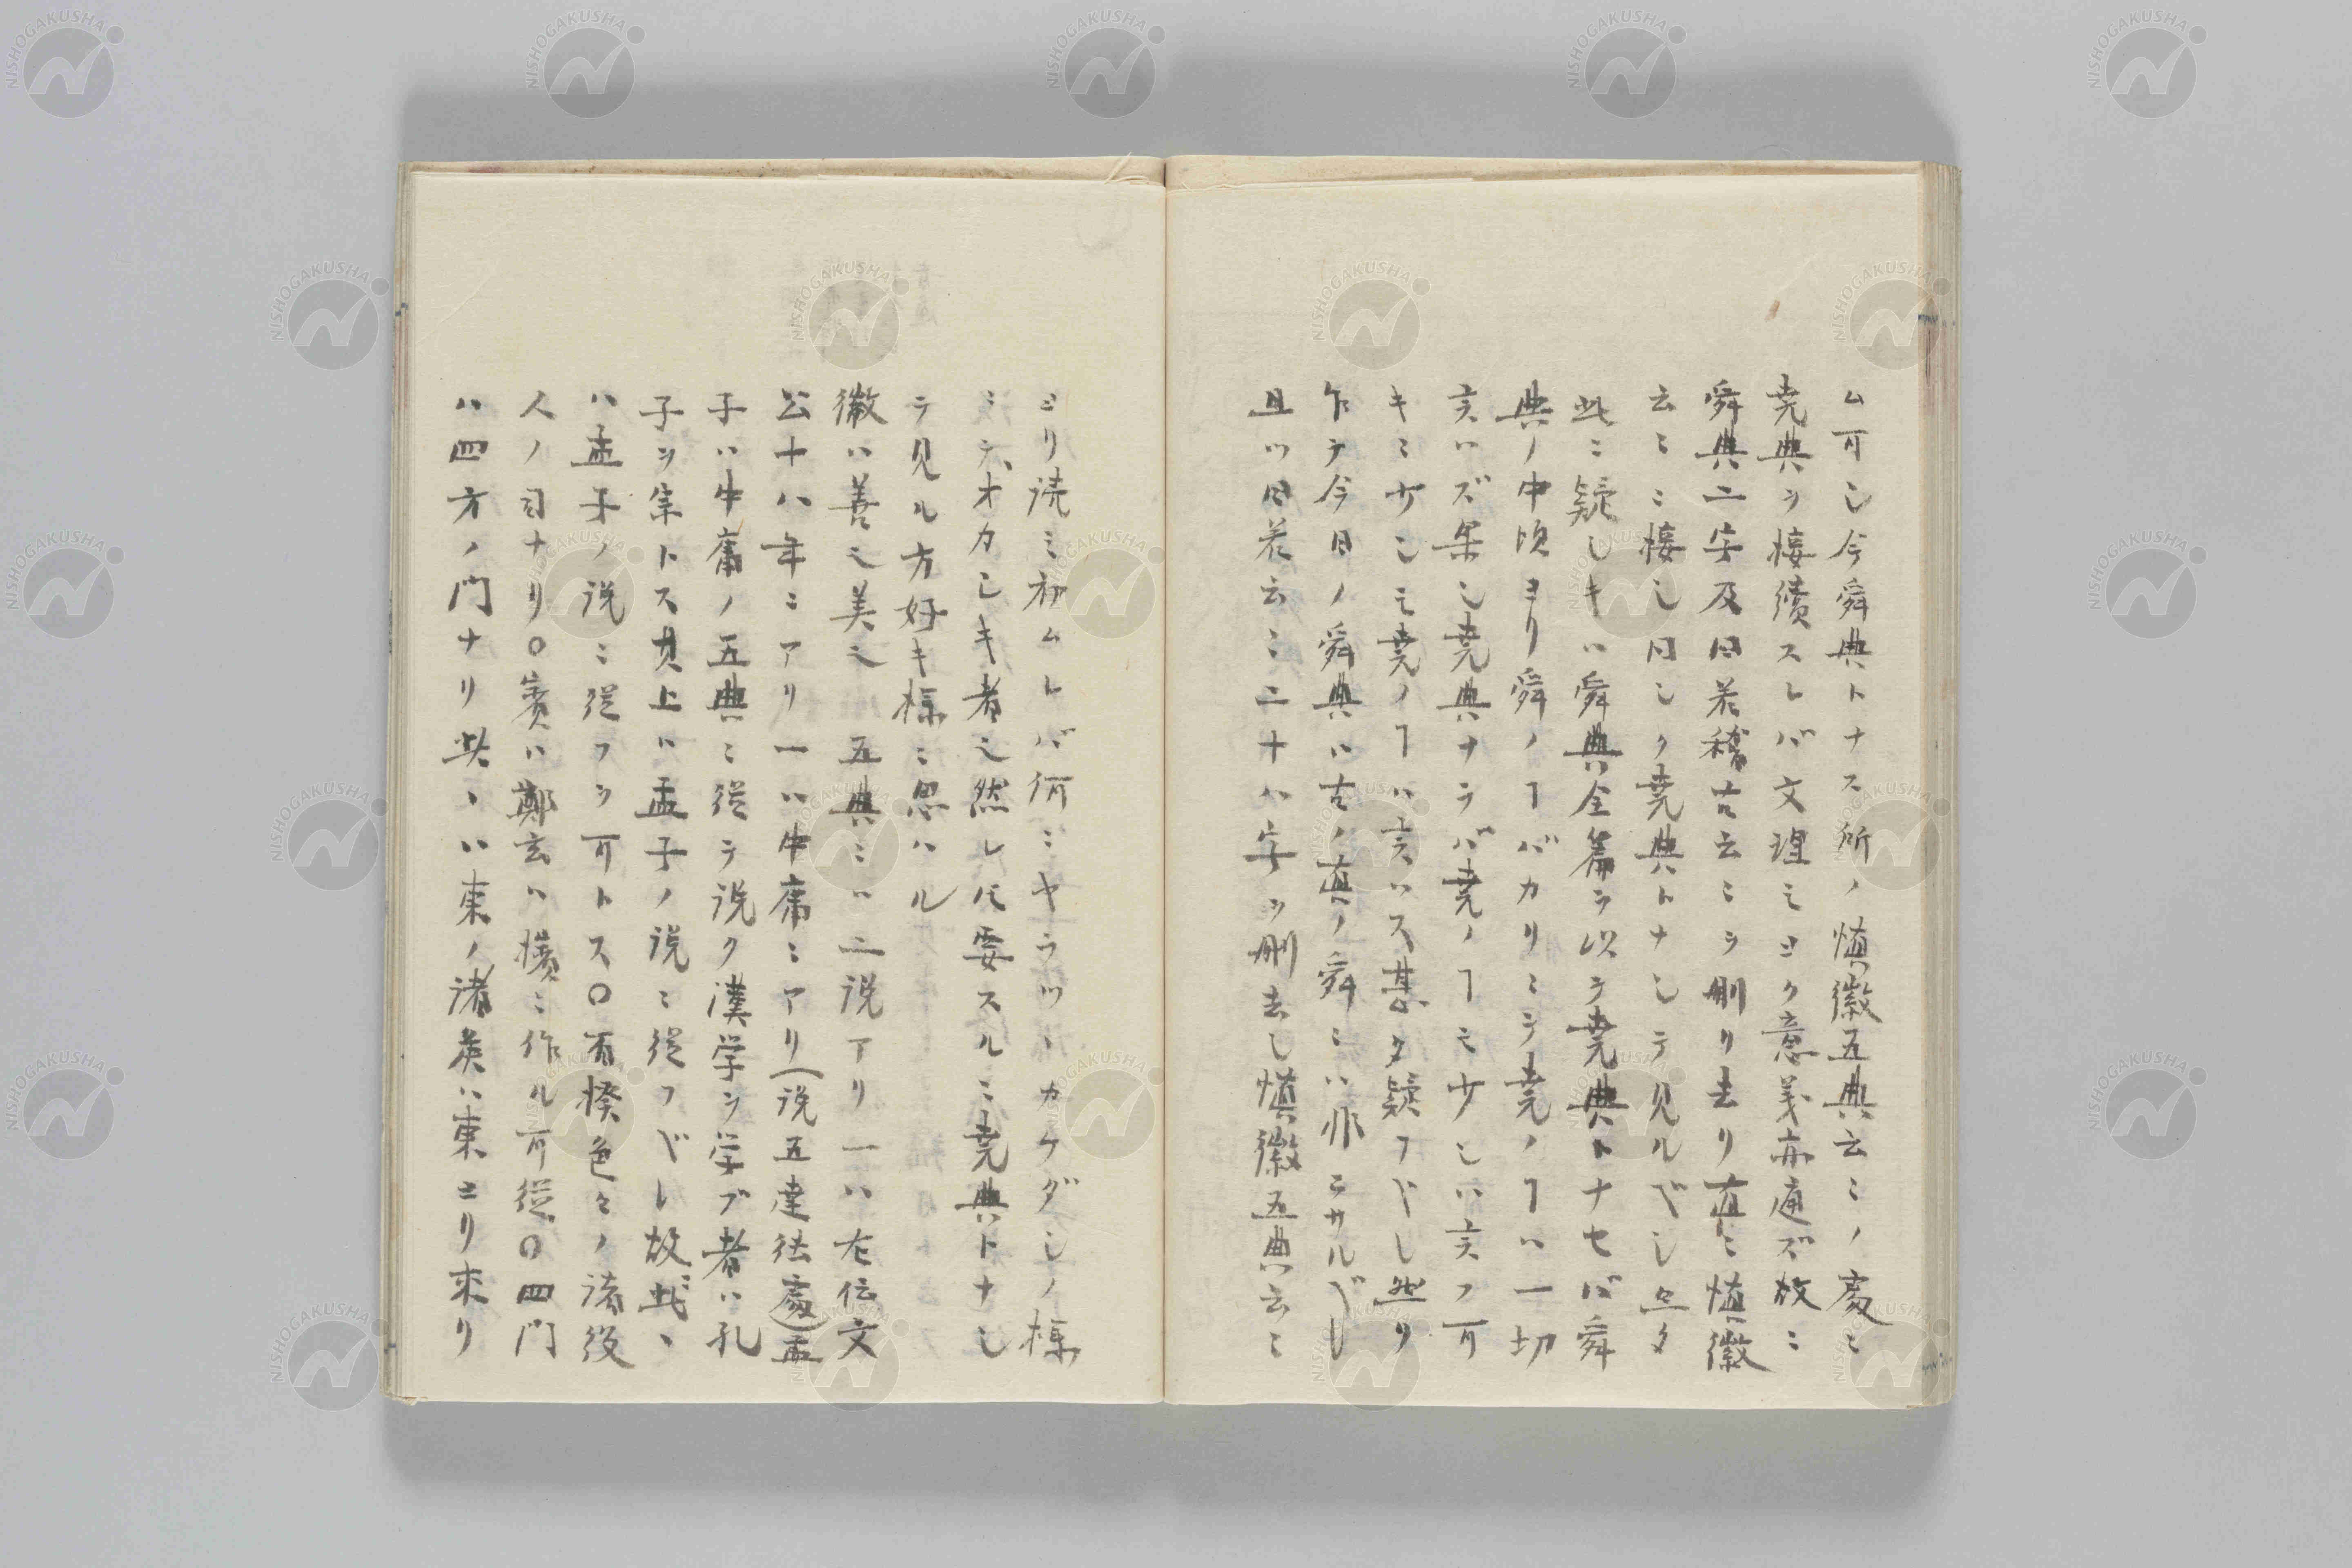 ム可シ今舜典トナス所ノ慎徽五典云ミノ處ニ
堯典ヲ接續スレバ文理モヨク意義亦通ズ故ニ
舜典二字及曰若稽古云ミヲ刪リ去リ直ニ慎徽
云ミニ接シ同シク堯典トナシテ見ルベシ
此ニ疑シキハ舜典全篇ヲ以テ堯典トナセバ舜
典ノ中頃ヨリ舜ノヿバカリニシテ堯ノヿハ一切
言ハズ果シ堯典ナラバ堯ノヿモ少シハ言フ可
キニ少シモ堯ノヿハ言ハス甚タ疑フベシ然リ
乍ラ今日ノ舜典ハ古ノ真ノ舜ミハ非ラサルベシ
且ツ曰若云ミ二十八字ヲ刪去シ慎徽五典云ミ
ヨリ読ミ初ムレバ何ニヤラツヽカケダシノ様
ニテオカシキ者也然レ圧要スルニ堯典トナシ
テ見ル方好キ様ニ思ハル
徽ハ善也美也 五典ニハ二説アリ一ハ左伝文
公十八年ニアリ一ハ中庸ニアリ(説五達法處)孟
子ハ中庸ノ五典ニ従テ説ク漢学ヲ学ブ者ハ孔
子ヲ宗トス其上ハ孟子ノ説ニ従フベシ故此ヽ
ハ孟子ノ説ニ従フヲ可トス〇百揆色々ノ諸役
人ノ司ナリ〇賓ハ鄭玄ハ擯ニ作ル可従〇四門
ハ四方ノ門ナリ此ヽハ東ノ諸侯ハ東ヨリ来リ
NISHOGAKUSHA